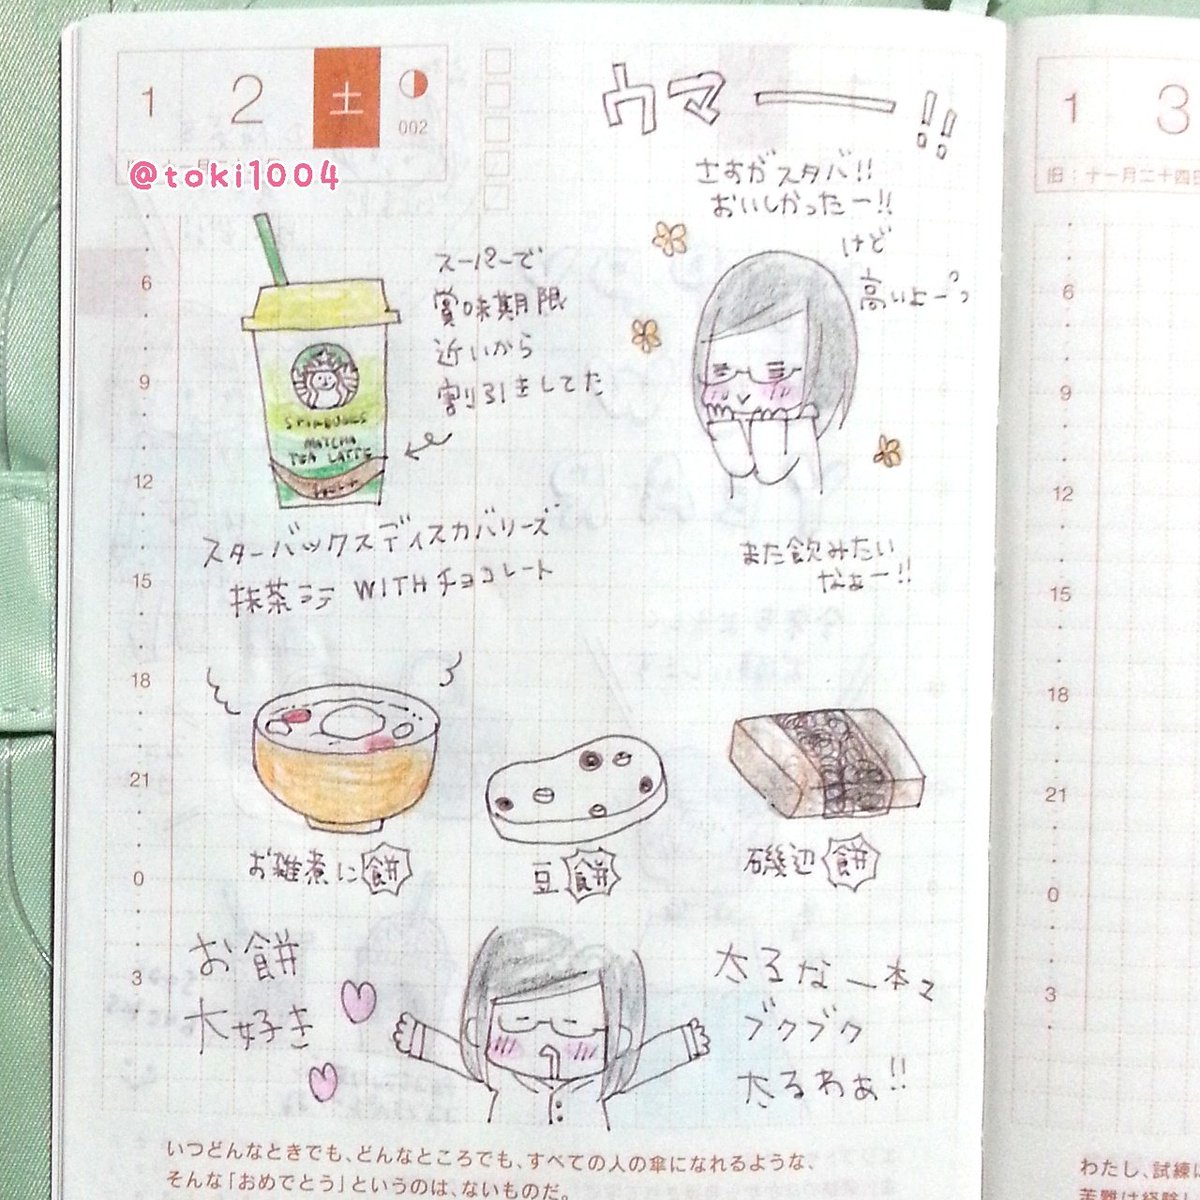 1 2 土
002
@toki1004
ウマー!!
さすがスタバ!!
おいしかったー!!
けど
高いよーっ
スーパーで
賞味期限
近いから
割引きしてた
STARBUCKS
MATCHA
TEA LATTE
スターバックスディスカバリーズ
抹茶ラテ WITHチョコレート
また飲みたい
なぁー!!
6
9
12
15
18
21
0
3
お雑煮に餅
豆餅
磯辺餅
お餅
大好き
ブクブク
太るわぁ!!
いつどんなときでも、どんなところでも、すべての人の傘になれるような、
そんな「おめでとう」というのは、ないものだ。
1 3
旧:十一月二十四日
6
9
12
15
18
21
0
3
わたし、試練に
苦難は経験